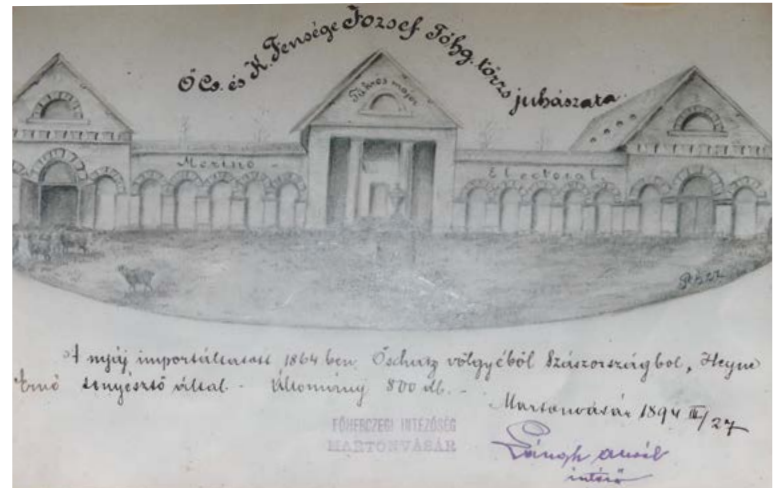 Ő Cs. és K. Fensége Jozsef Főhg. törzs juhászata.
Fükros major
Merino
Electoral
Rácz
A nyáj importáltatott 1864 ben Öschatz völgyéből Szászországbol, Heyne
Ernő tenyésztő által - Állomány 800 db. -
Martonvásár 1894 III/27
FŐHERCZEGI INTÉZŐSÉG
MARTONVÁSÁR
Lángh
intéző